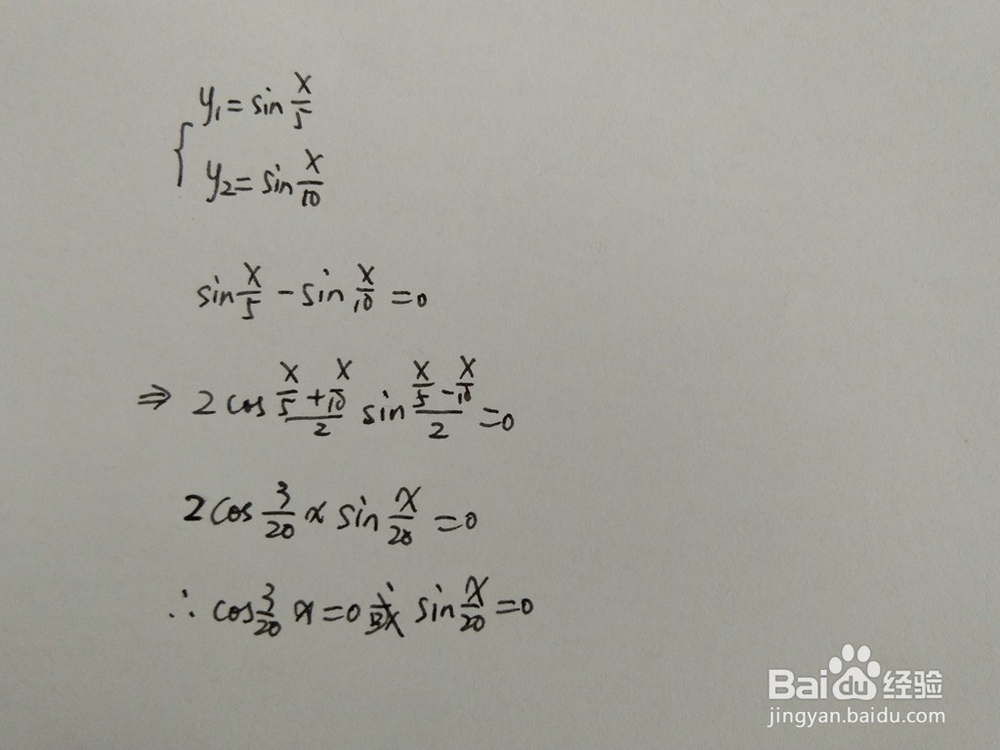 y₁=sin x/5
y₂=sin x/10
sin x/5 - sin x/10 =0
⇒ 2cos (x/5+x/10)/2 sin (x/5-x/10)/2 =0
2cos 3/20 x sin x/20 =0
∴ cos 3/20 x=0 或 sin x/20 =0
Baidu经验
jingyan.baidu.com